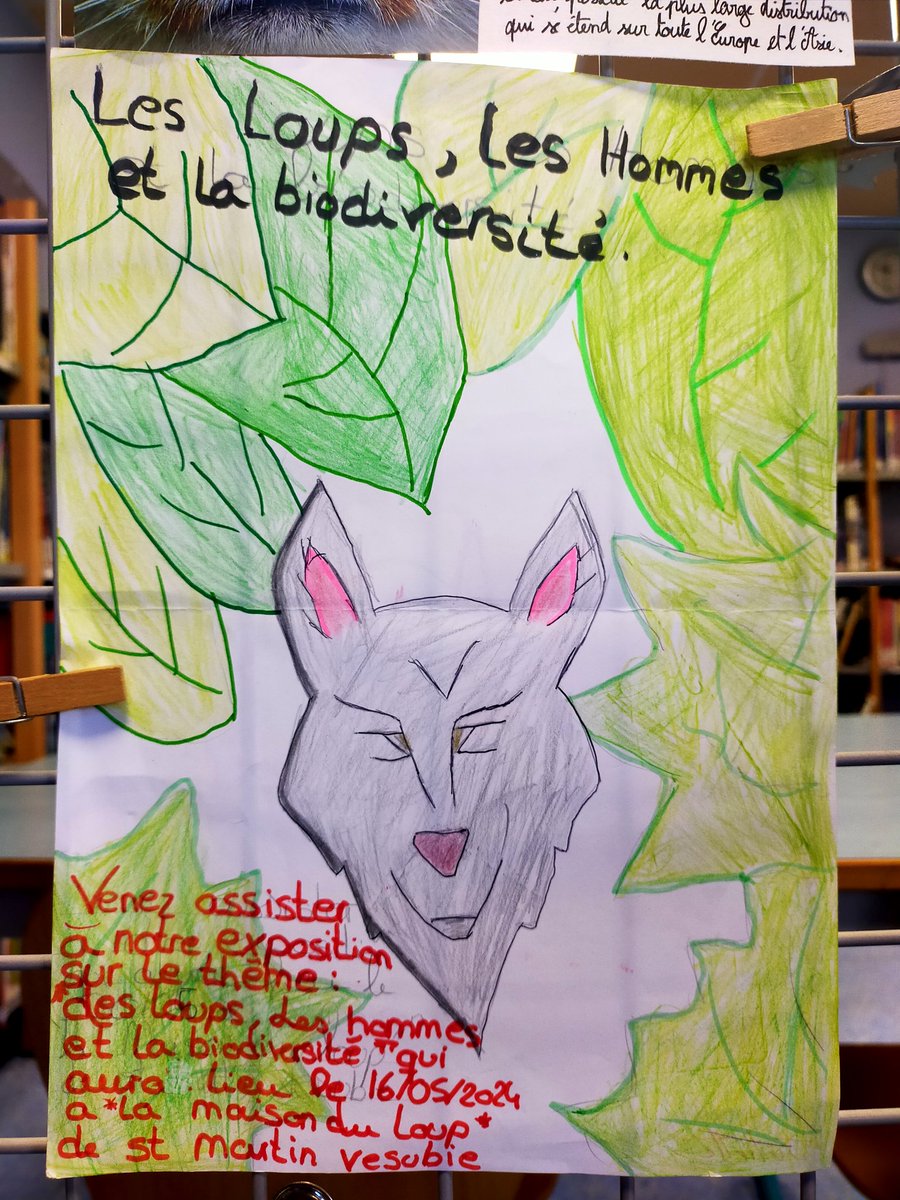 la plus large distribution
qui s'étend sur toute l'Europe et l'Asie.
Les Loups, les Hommes
et la biodiversité.
Venez assister
à notre exposition
sur le thème :
"des loups, des hommes
et la biodiversité" qui
aura lieu le 16/05/2024
a "la maison du loup"
de st Martin vesubie